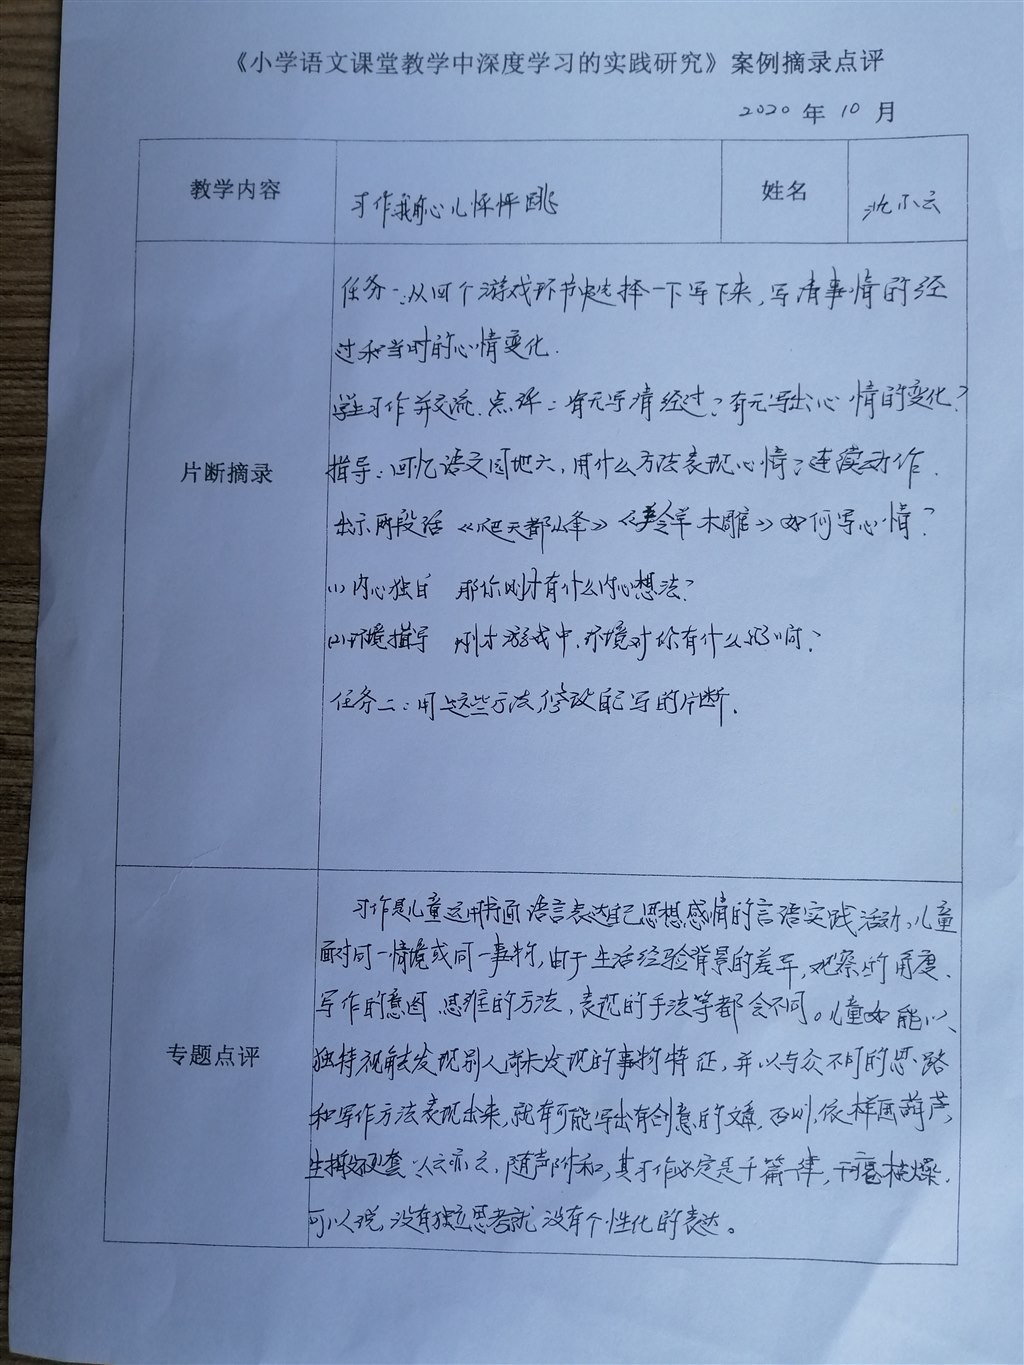 《小学语文课堂教学中深度学习的实践研究》案例摘录点评
2020 年 10 月
教学内容
习作我的心儿怦怦跳
姓名
沈小云
片断摘录
任务一:从四个游戏环节中选择一下写下来,写清事情的经
过和当时的心情变化.
学生习作并交流、点评:有无写清经过?有无写出心情的变化?
指导:回忆语文园地六,用什么方法表现心情?连续动作.
出示两段话《爬天都峰》《羚羊木雕》如何写心情?
(1)内心独白 那你刚才有什么内心想法?
(2)环境描写 刚才游戏中,环境对你有什么影响?
任务二:用这些方法,修改自己写的片断.
专题点评
习作是儿童运用书面语言表达自己思想感情的言语实践活动,儿童
面对同一情境或同一事物,由于生活经验背景的差异,观察的角度、
写作的意图、思维的方法,表现的手法等都会不同。儿童如能以
独特视角去发现别人尚未发现的事物特征,并以与众不同的思路
和写作方法表现出来,就有可能写出有创意的文章,否则,依样画葫芦,
生搬硬套 人云亦云,随声附和,其习作必定是千篇一律,干瘪枯燥.
可以说,没有独立思考就没有个性化的表达。